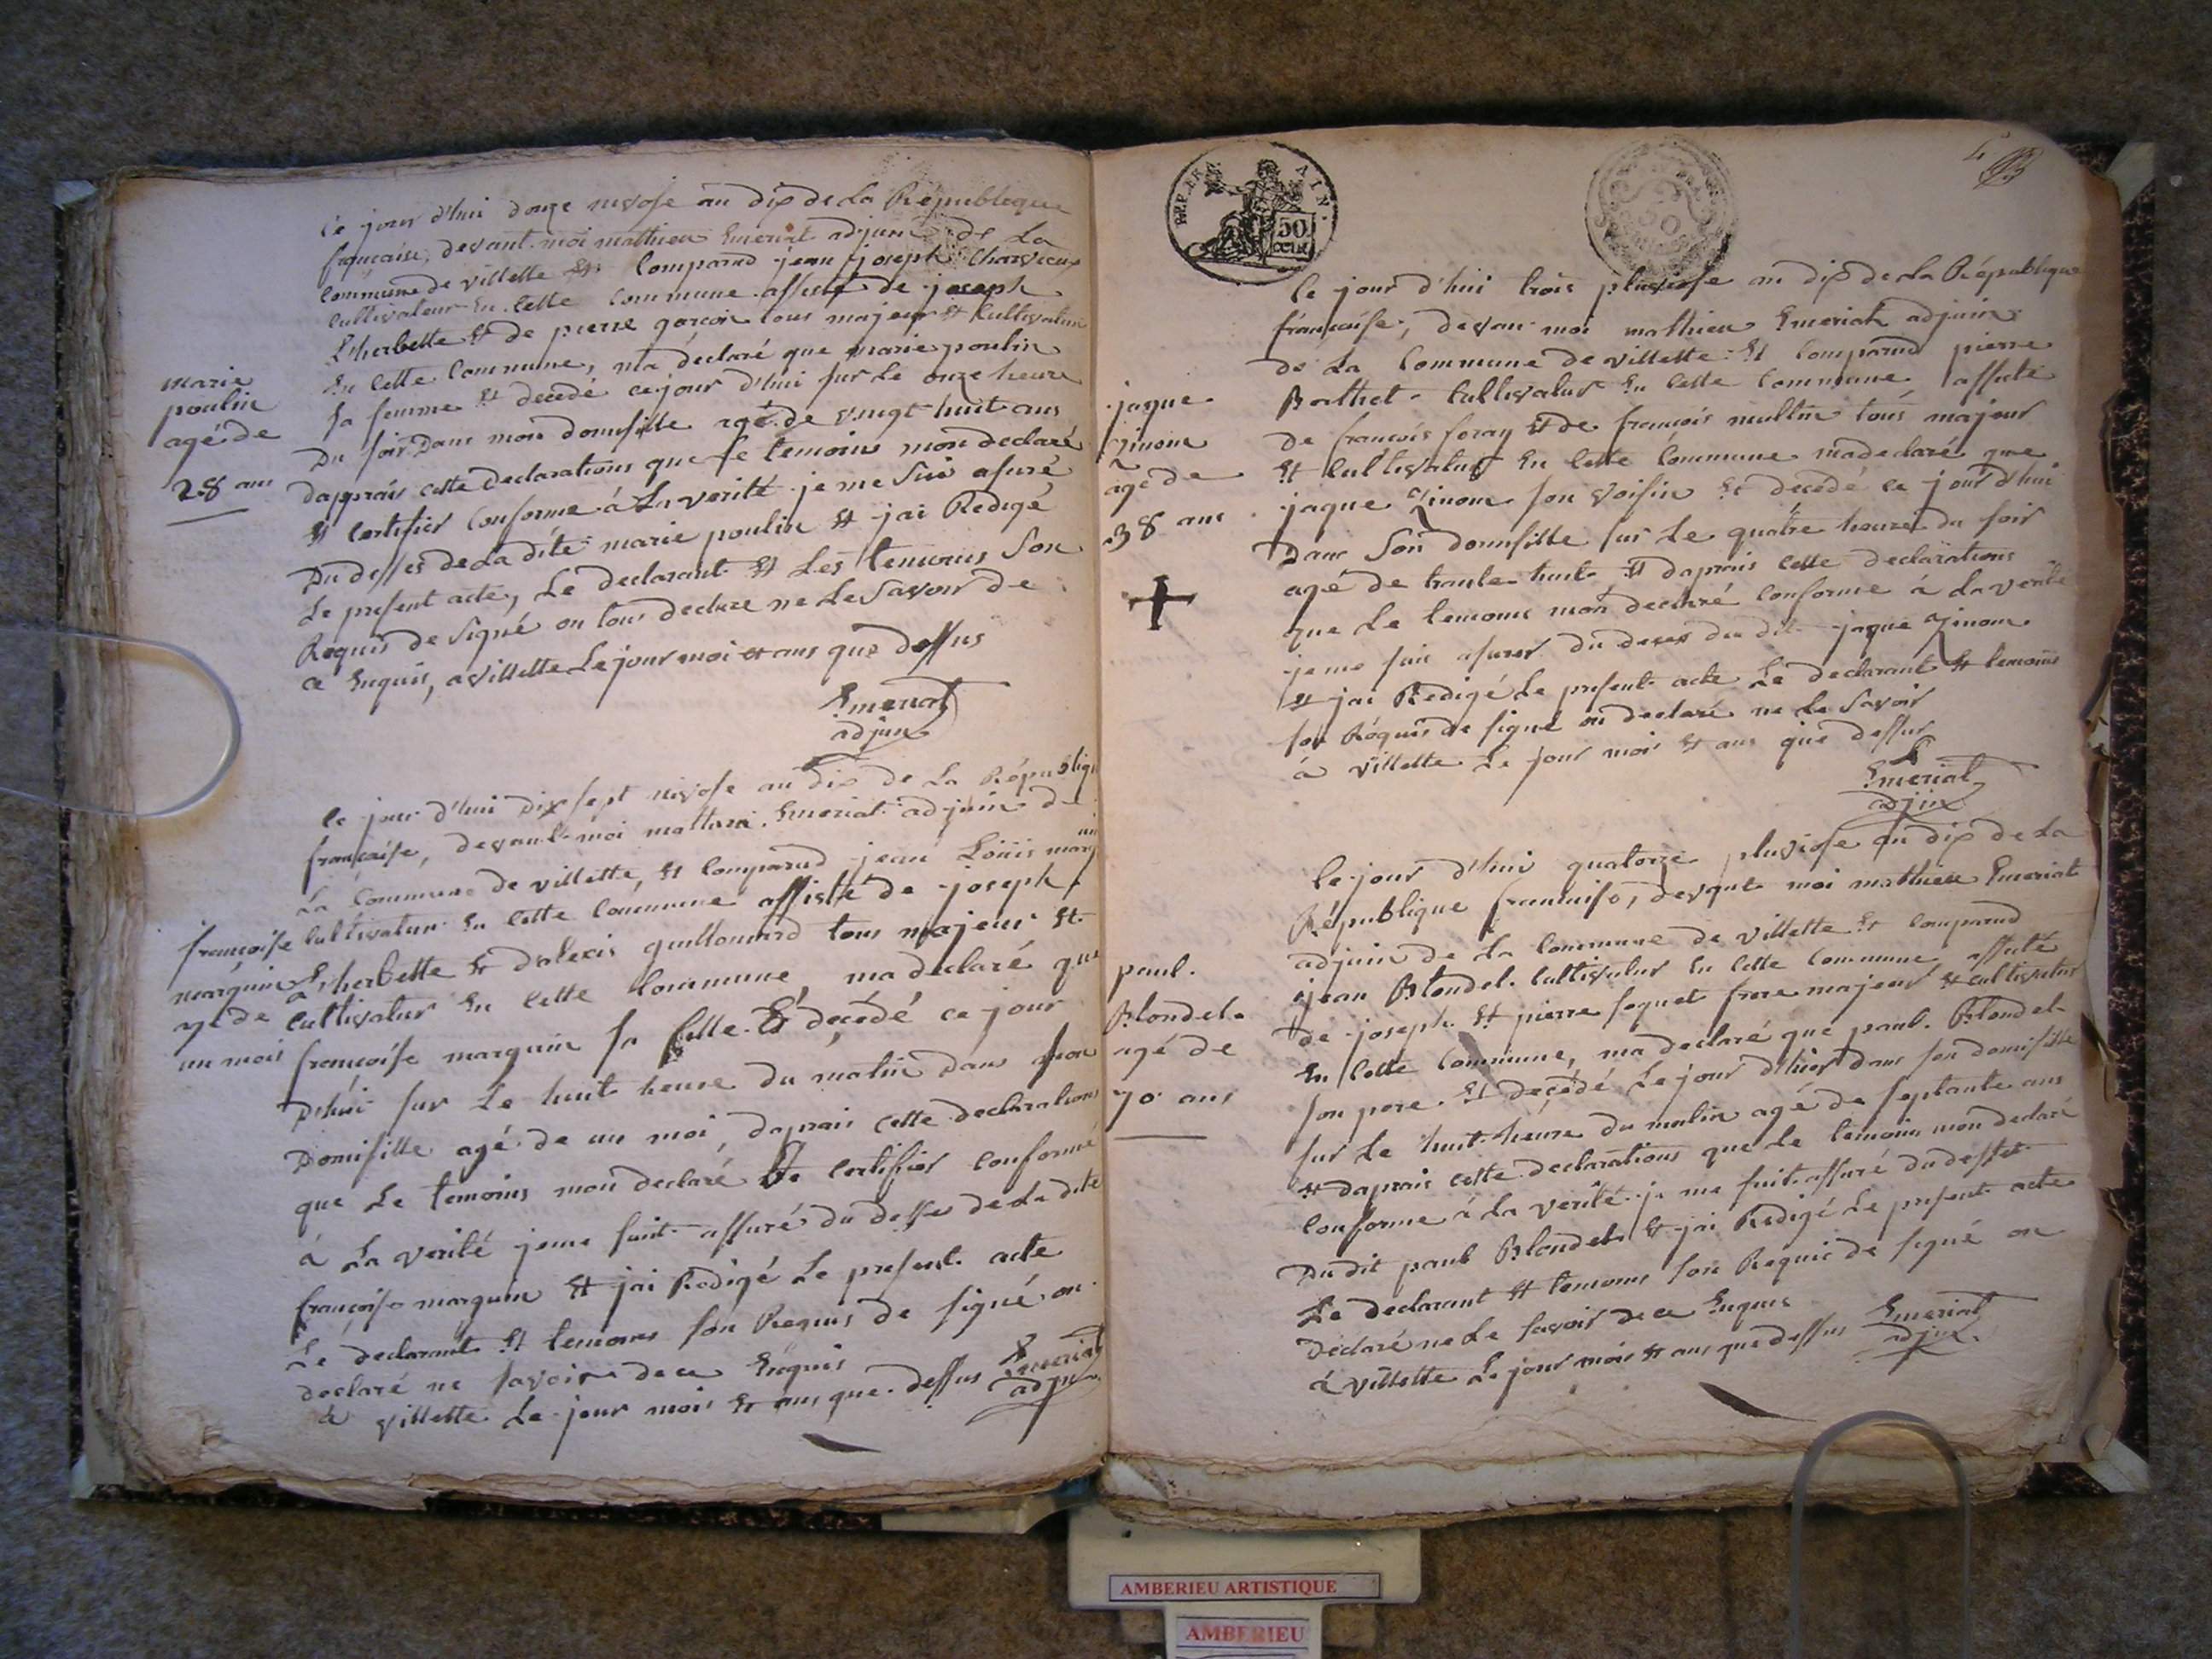 ce jour d'hui douze nivose an dix de la République
francaise, devant moi mathieu Emeriat adjuin de La
commune de villette Et comparud jean joseph Charvieux
cultivateur En cette commune assisté de joseph
L'herbette Et de pierre tous majeur Et Cultivateur
En cette Commune, ma déclaré que marie poulin
sa femme Et décedé ce jour d'hui sur Le onze heure
Du soir Dans mon domisille agé de vingt huit ans
marie
poulin
agé de
28 ans
daprais cette declarations que le temoins mon declaré
Et certifier Conforme à La verité je me suis asuré
Du desses de La dite marie poulin Et jai Redigé
Le present acte, Le declarant Et Les temoins Son
Requis de Signé on tous declare ne Le Savoir de
ce Enquis, a villette Le jour moi et ans que dessus
Emeriat
adjuin
ce jour d'hui Dix sept nivose an dix de La Républiqu
francaise, devant moi mathieu Emeriat adjuin de
La Commune de villette, Et comparud jean Louis
cultivateur En cette commune assisté de joseph
L'herbette Et dalexis guillomard tous majeur Et
cultivateur En cette Commune, ma declaré que
françoise marguin sa fille Et décédé ce jour
D'hui sur Le huit heure Du matin dans mon
françoise
marguin
agé de
un mois
Domisille agé de un moi, daprais cette declarations
que Le temoins mon declaré Et certifier conforme
à La verité jeme suit assuré du desse de La dite
françoise marguin Et jai Redigé Le present acte
Le declarant Et temoins son Requis de signé on
declaré ne savoir de ce Enquis
à villette Le jour mois Et ans que dessus Emeriat
adjuin
REP. FRA AIN.
50
CENT
4
ce jour d'hui trois pluviose an dix de La République
françoise, devan moi mathieu Emeriat adjuin
de La Commune de villette Et Comparud pierre
Bathet Cultivatur En cette Commune assisté
de francois foray Et de francois tous majeur
Et Cultivatur En cette Commune ma declaré que
jaque ginom son voisin Et decédé ce jour d'hui
Dans Son domisille sur Le quatre heure du soir
agé de trante huit Et daprais cette declarations
que Le temoins mon declaré conforme à La verité
je me suis asurer du deces du dit jaque ginom
Et jai Redigé Le present acte Le declarant Et temoins
son Requis de signé on declaré ne Le Savoir
à villette Le jour mois Et ans que dessus
Emeriat
adjuin
jaque
ginom
agé de
38 ans
ce jour d'hui quatorze pluviose an dix de La
République francaise, devant moi mathieu Emeriat
adjuin de La Commune de villette Et comparud
jean Blondel Cultivatur En cette Commune assisté
de joseph Et pierre frere majeur Et cultivatur
En cette Commune, ma declaré que paul Blondel
son pere Et decédé Le jour d'hier dans son domisille
sur Le huit heure du matin agé de septante ans
Et daprais cette declarations que Le temoins mon declaré
conforme à La verité je me suit assuré du desses
Du dit paul Blondel Et jai Redigé Le present acte
Le declarant Et temoins son Requis de signé on
Declaré ne Le savoir de ce Enquis
à villette Le jour mois Et ans que dessus
Emeriat
adjuin
paul
Blondel
agé de
70 ans
AMBERIEU ARTISTIQUE
AMBERIEU